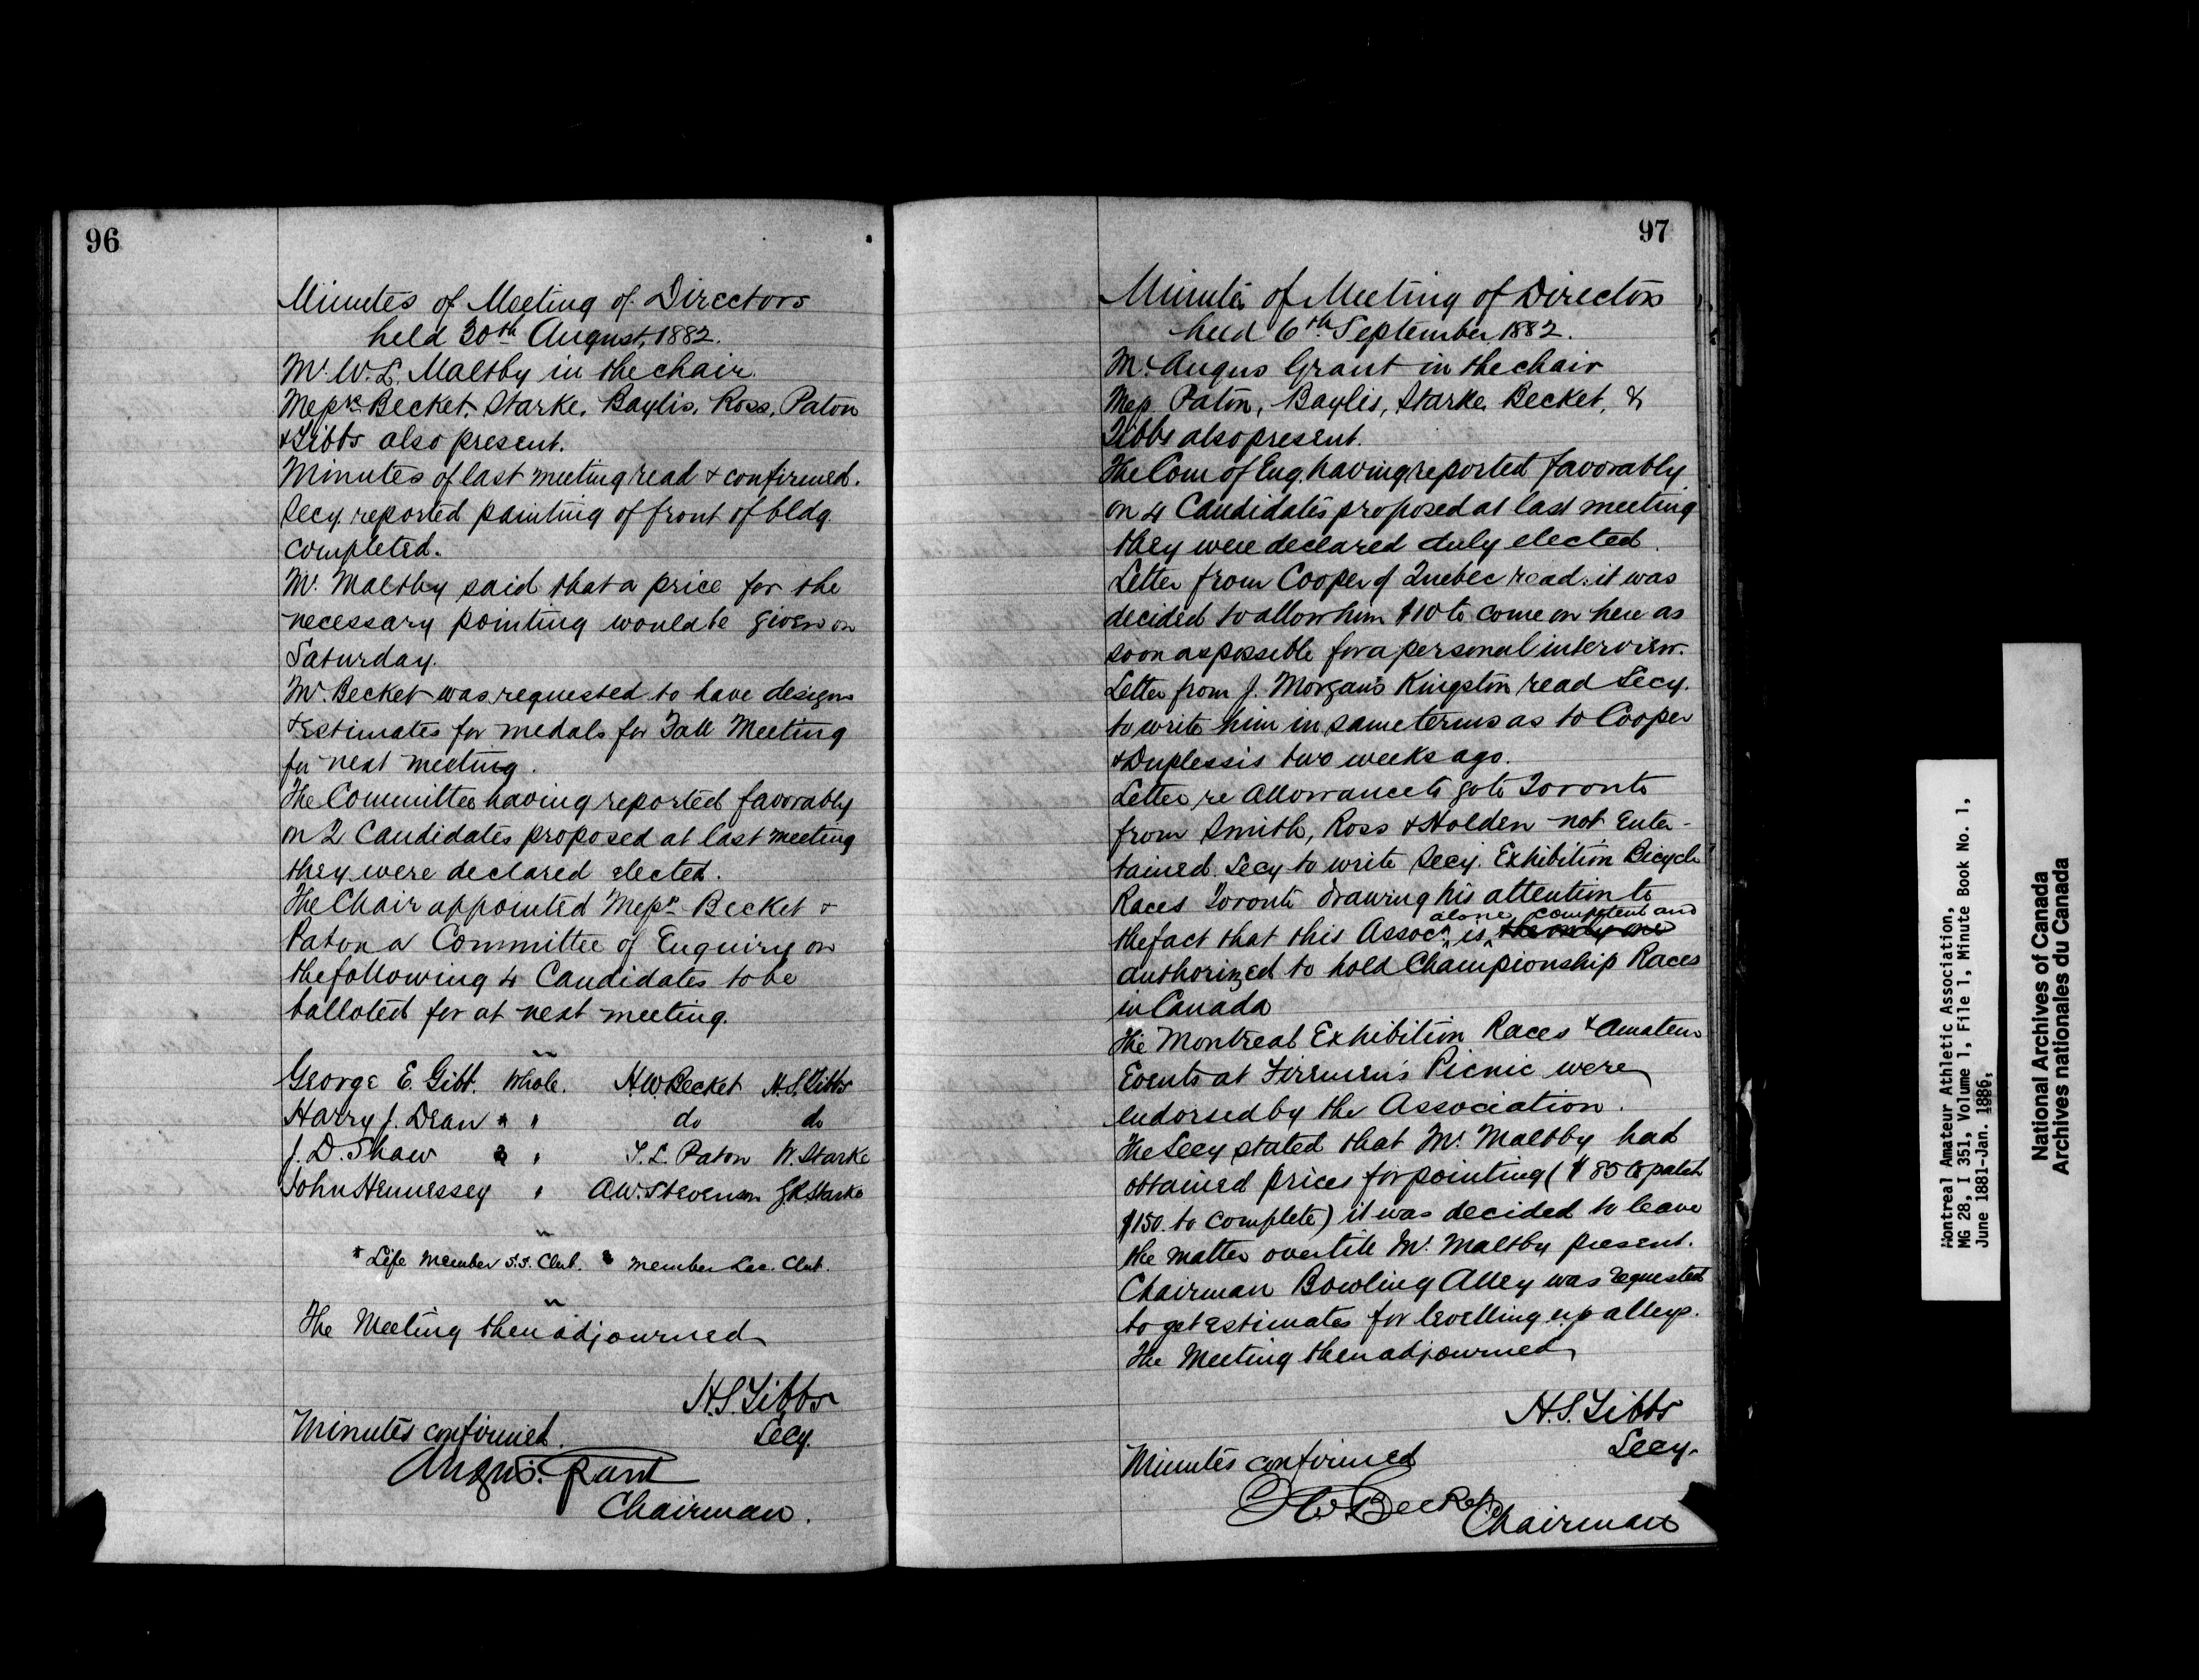 96
Minutes of Meeting of Directors
held 30th August, 1882.
Mr. W. L. Maltby in the chair.
Messrs Becket, Starke, Baylis, Ross, Paton
& Tibbs also present.
Minutes of last meeting read & confirmed.
Secy. reported painting of front of bldg.
completed.
Mr. Maltby said that a price for the
necessary pointing would be given on
Saturday.
Mr. Becket was requested to have designs
& Estimates for medals for Fall Meeting
for next meeting.
The Committee having reported favorably
on 2 Candidates proposed at last meeting
they were declared elected.
The Chair appointed Messrs Becket &
Paton a Committee of Enquiry on
the following 4 Candidates to be
balloted for at next meeting.
George E. Gibb. Whole. H.W. Becket H.S. Tibbs
Harry J. Dean * " do do
J. D. Shaw " T. L. Paton W. Starke
John Hennessey " A.W. Stevenson G.R. Starke
* Life Member S.S. Club. member Lac. Club.
The Meeting then adjourned
H.S. Tibbs
Secy.
Minutes confirmed.
Angus Grant
Chairman.
97
Minutes of Meeting of Directors
held 6th September 1882.
Mr. Angus Grant in the chair
Mess. Paton, Baylis, Starke, Becket, &
Tibbs also present.
The Com of Enq. having reported favorably
on 4 Candidates proposed at last meeting
they were declared duly elected.
Letter from Cooper of Quebec read: it was
decided to allow him $10 to come on here as
soon as possible for a personal interview.
Letter from J. Morgans Kingston read Secy.
to write him in same terms as to Cooper
& Duplessis two weeks ago.
Letter re Allowance to go to Toronto
from Smith, Ross & Holden not Enter-
tained. Secy to write Secy. Exhibition Bicycle
Races Toronto drawing his attention to
alone competent and
the fact that this Assocn is the only one
authorized to hold Championship Races
in Canada
The Montreal Exhibition Races & Amateur
Events at Firemen's Picnic were
endorsed by the Association.
The Secy stated that Mr. Maltby had
obtained prices for pointing ($85 to patch
$150. to complete) it was decided to leave
the matter over till Mr. Maltby present.
Chairman Bowling Alley was requested
to get estimates for levelling up alleys.
The Meeting then adjourned
H.S. Tibbs
Secy.
Minutes confirmed
H W Becket
Chairman
Montreal Amateur Athletic Association,
MG 28, I 351, Volume 1, File 1, Minute Book No. 1,
June 1881-Jan. 1886.
National Archives of Canada
Archives nationales du Canada